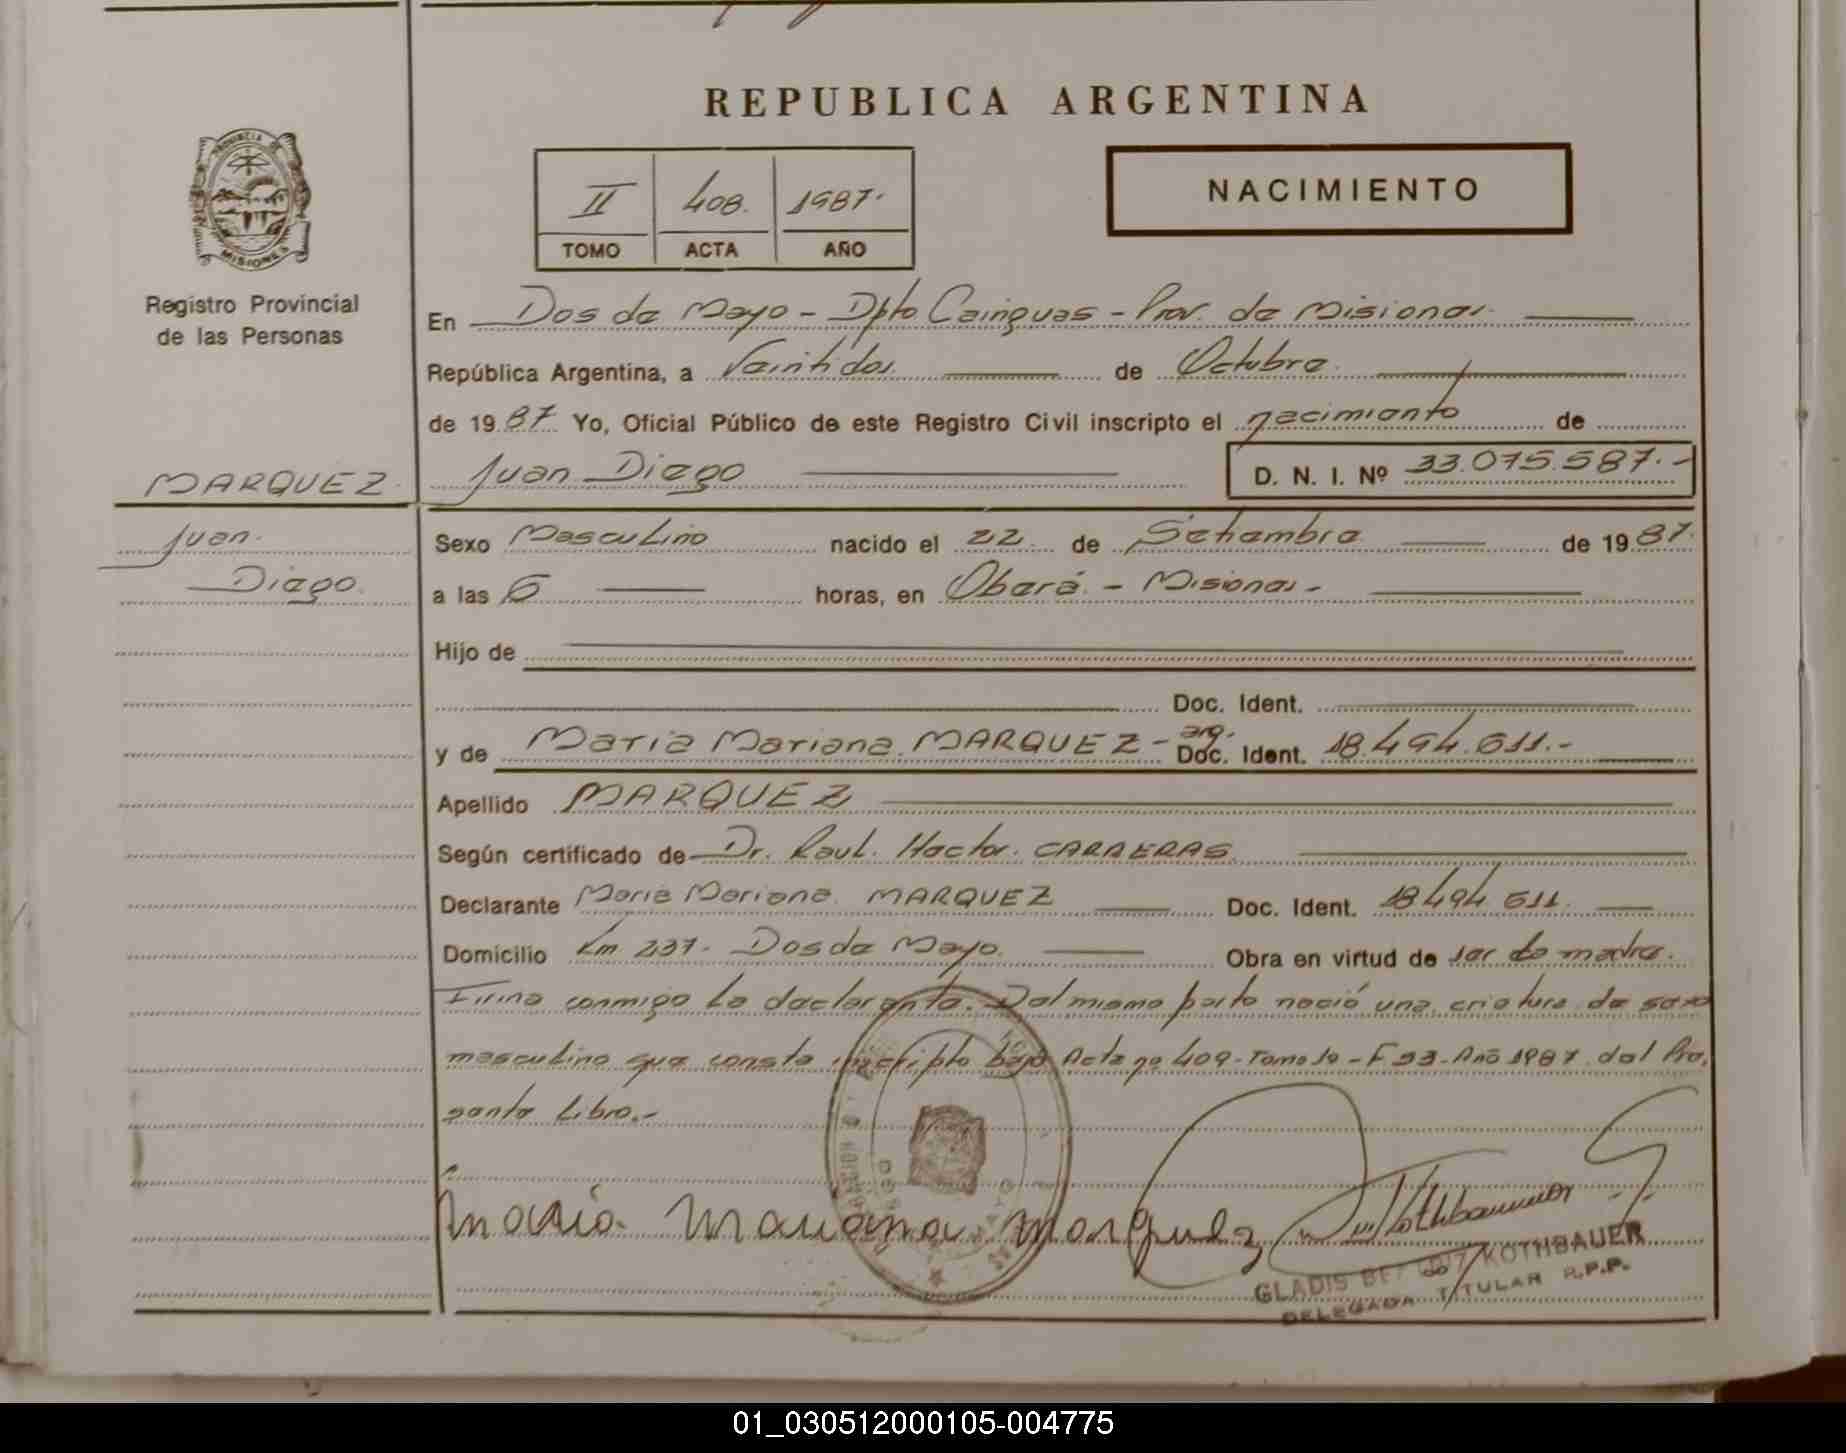 REPUBLICA ARGENTINA
PROVINCIA DE
MISIONES
Registro Provincial
de las Personas
II 408. 1987.
TOMO ACTA AÑO
NACIMIENTO
En Dos de Mayo - Dpto Cainguas - Prov. de Misiones.
República Argentina, a Veintidos de Octubre.
de 19 87 Yo, Oficial Público de este Registro Civil inscripto el nacimiento de
MARQUEZ
Juan Diego D. N. I. Nº 33.075.587.-
Juan.
Diego.
Sexo Masculino nacido el 22 de Setiembre de 19 87.
a las 6 horas, en Oberá. - Misiones -
Hijo de
Doc. Ident.
y de Maria Mariana MARQUEZ - arg. Doc. Ident. 18.494.611.-
Apellido MARQUEZ
Según certificado de Dr. Raul Hector CARRERAS
Declarante Maria Mariana MARQUEZ Doc. Ident. 18494611.
Domicilio Km 237. Dos de Mayo. Obra en virtud de ser la madre.
Firma conmigo la declarante. Del mismo parto nació una criatura de sexo
masculino que consta inscripto bajo Acta nº 409 - Tomo 1º - F 93 - Año 1987 del Pre,
sente Libro.-
Maria Mariana Marquez
Kothbauer
GLADIS KOTHBAUER
DELEGADA TITULAR R.P.P.
01_030512000105-004775